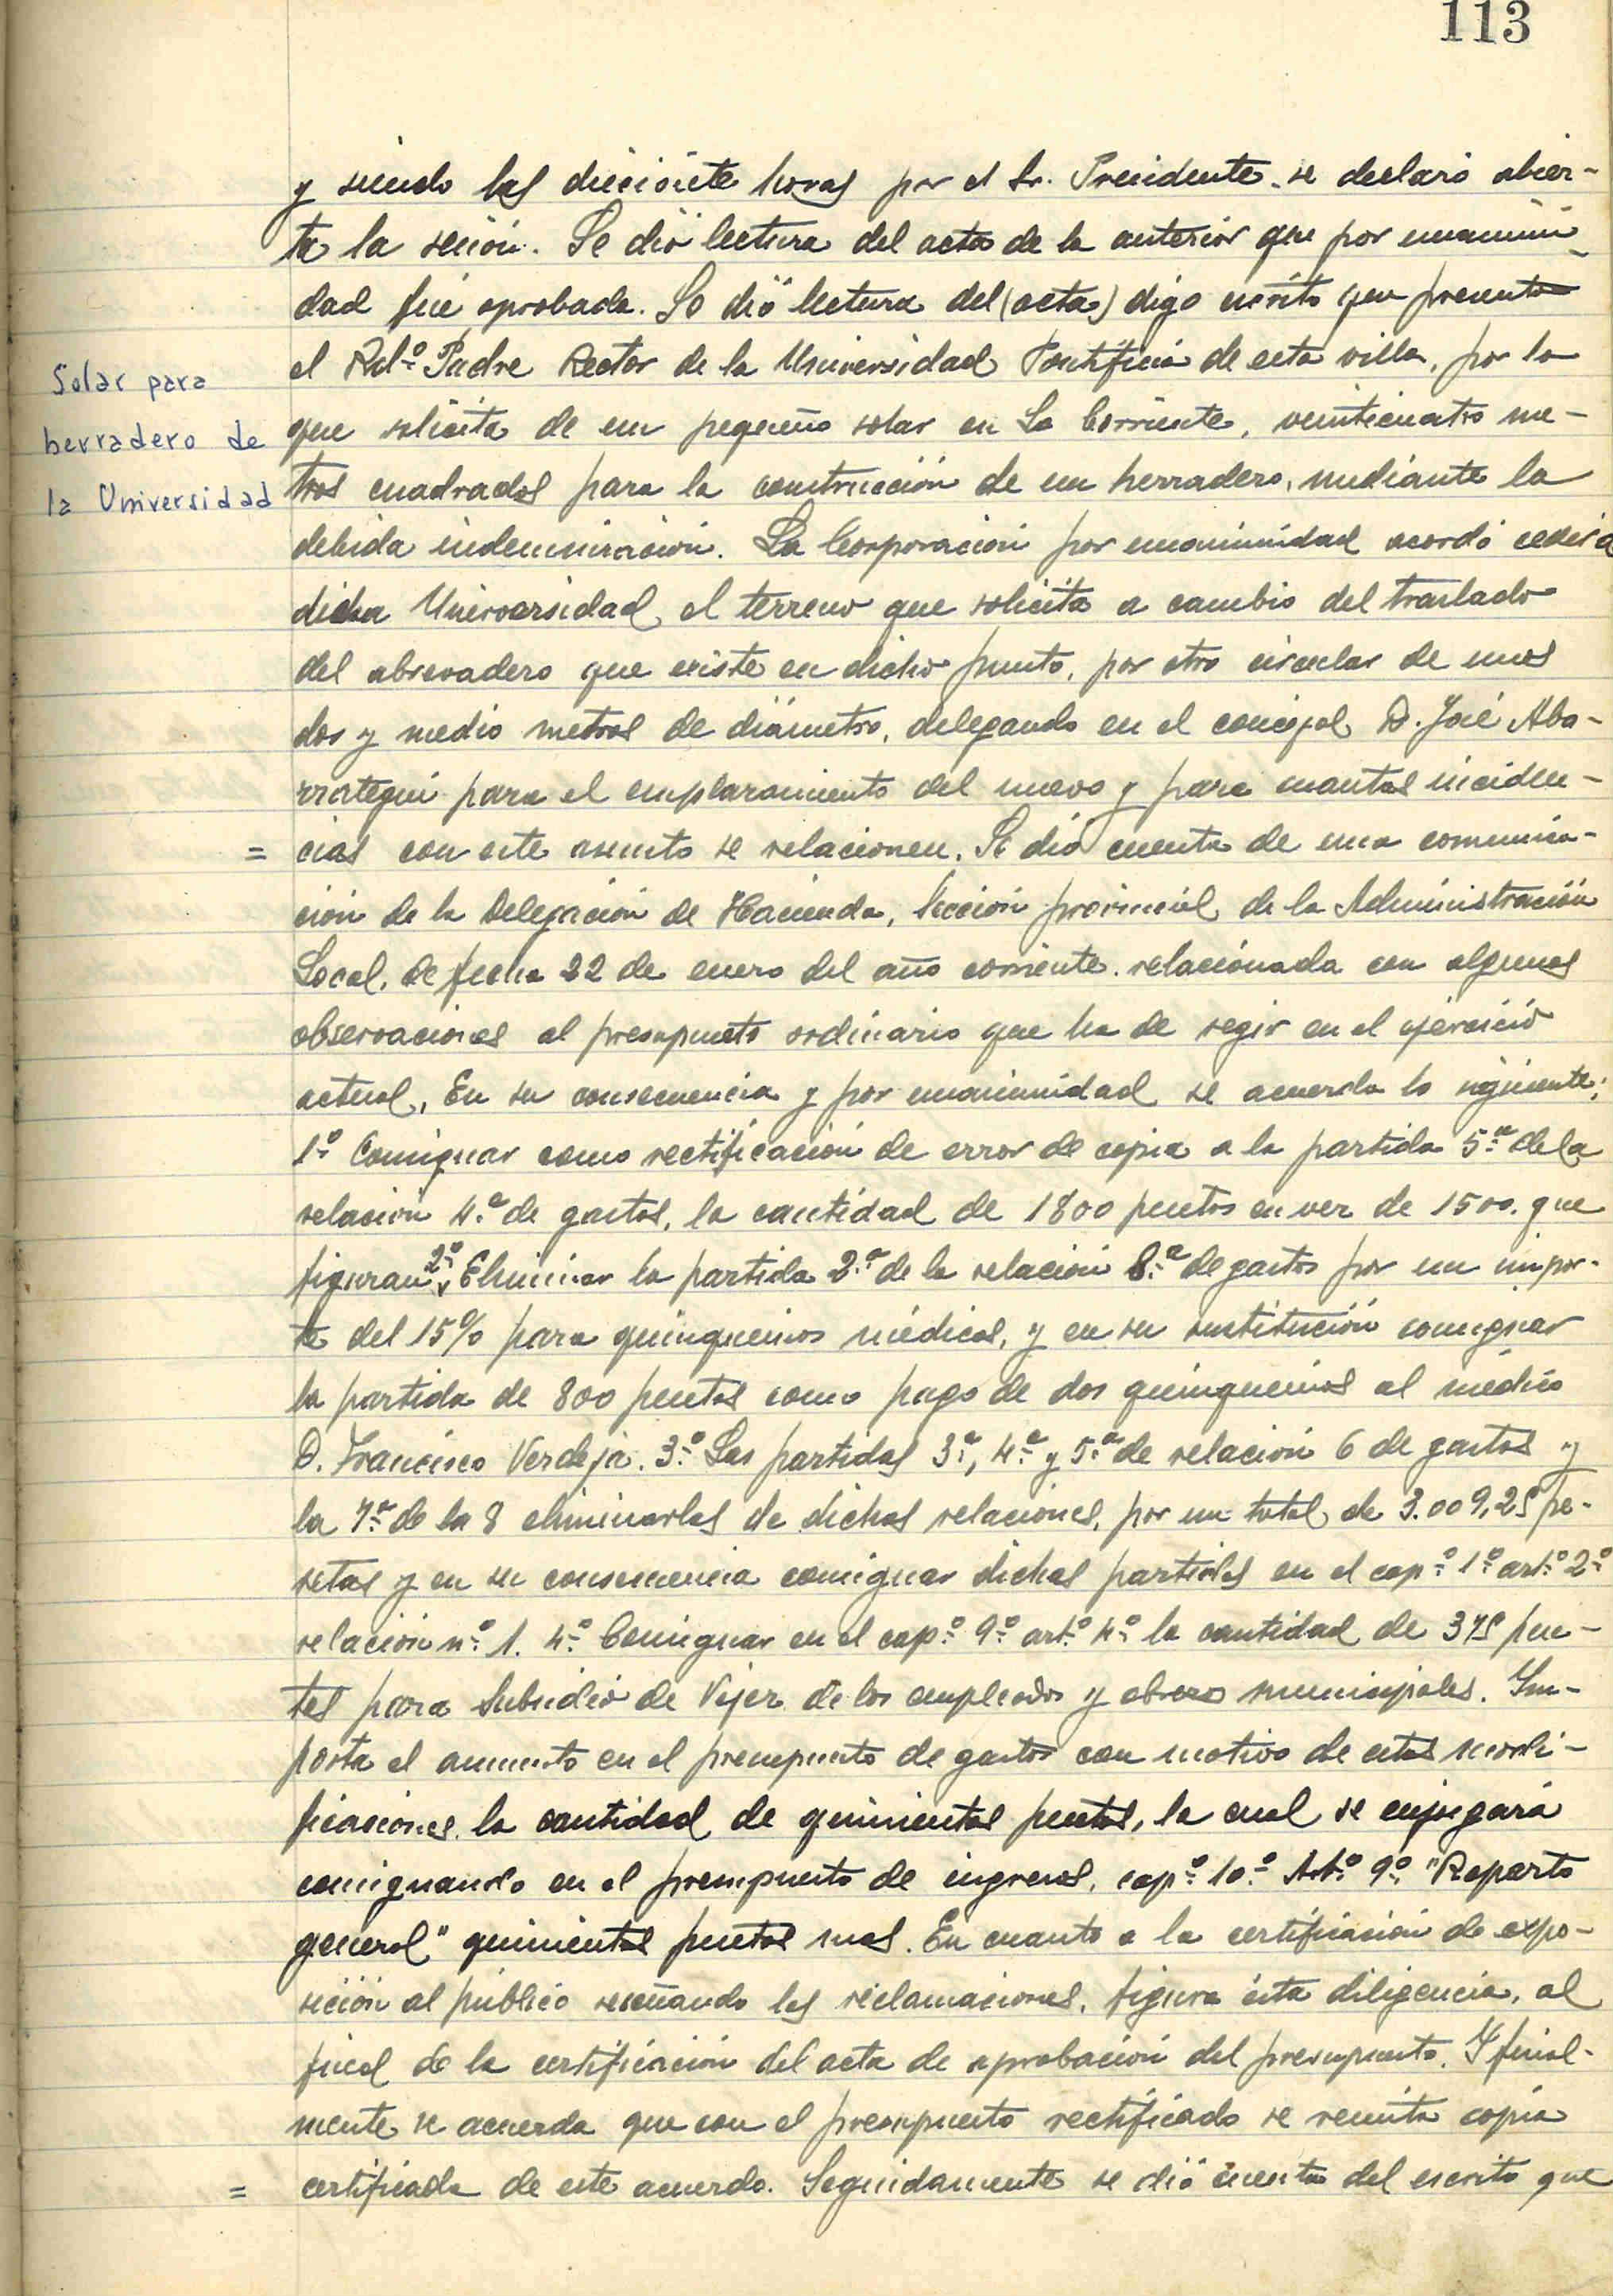 113
y siendo las diecisiete horas por el Sr. Presidente se declaró abier-
ta la sesión. Se dió lectura del acta de la anterior que por unanimi-
dad fué aprobada. Se dió lectura del (acta) digo escrito que presenta
el Rdº Padre Rector de la Universidad Pontificia de esta villa, por lo
Solar para
herradero de
la Universidad
que solicita de un pequeño solar en La Corriente, veinticuatro me-
tros cuadrados para la construcción de un herradero, mediante la
debida indemnización. La Corporación por unanimidad acordó ceder a
dicha Universidad el terreno que solicita a cambio del traslado
del abrevadero que existe en dicho punto, por otro circular de unos
dos y medio metros de diámetro, delegando en el concejal D. José Aba-
rrategui para el emplazamiento del nuevo y para cuantas inciden-
= cias con este asunto se relacionen. Se dió cuenta de una comunica-
ción de la Delegación de Hacienda, Sección provincial de la Administración
Local, de fecha 22 de enero del año corriente relacionada con algunas
observaciones al presupuesto ordinario que ha de regir en el ejercicio
actual, En su consecuencia y por unanimidad se acuerda lo siguiente;
1º Consignar como rectificación de error de copia a la partida 5ª de la
relación 4ª de gastos, la cantidad de 1800 pesetas en vez de 1500 que
figuran 2º Eliminar la partida 2ª de la relación 8ª de gastos por un impor-
te del 15% para quinquenios médicos, y en su sustitución consignar
la partida de 800 pesetas como pago de dos quinquenios al médico
D. Francisco Verdeja. 3º Las partidas 3ª, 4ª y 5ª de relación 6 de gastos y
la 7ª de la 8 eliminarlas de dichas relaciones, por un total de 3.009,25 pe-
setas y en su consecuencia consignar dichas partidas en el capº 1º artº 2º
relación nº 1. 4º Consignar en el capº 9º artº 4º la cantidad de 375 pese-
tas para Subsidio de Vejez de los empleados y obreros municipales. Im-
porta el aumento en el presupuesto de gastos con motivo de estas modi-
ficaciones la cantidad de quinientas pesetas, la cual se enjugará
consignando en el presupuesto de ingresos, capº 10º Artº 9º "Reparto
general" quinientas pesetas mas. En cuanto a la certificación de expo-
sición al público reseñando las reclamaciones, figura ésta diligencia, al
final de la certificación del acta de aprobación del presupuesto. Y final-
mente se acuerda que con el presupuesto rectificado se remita copia
= certificada de este acuerdo. Seguidamente se dió cuenta del escrito que